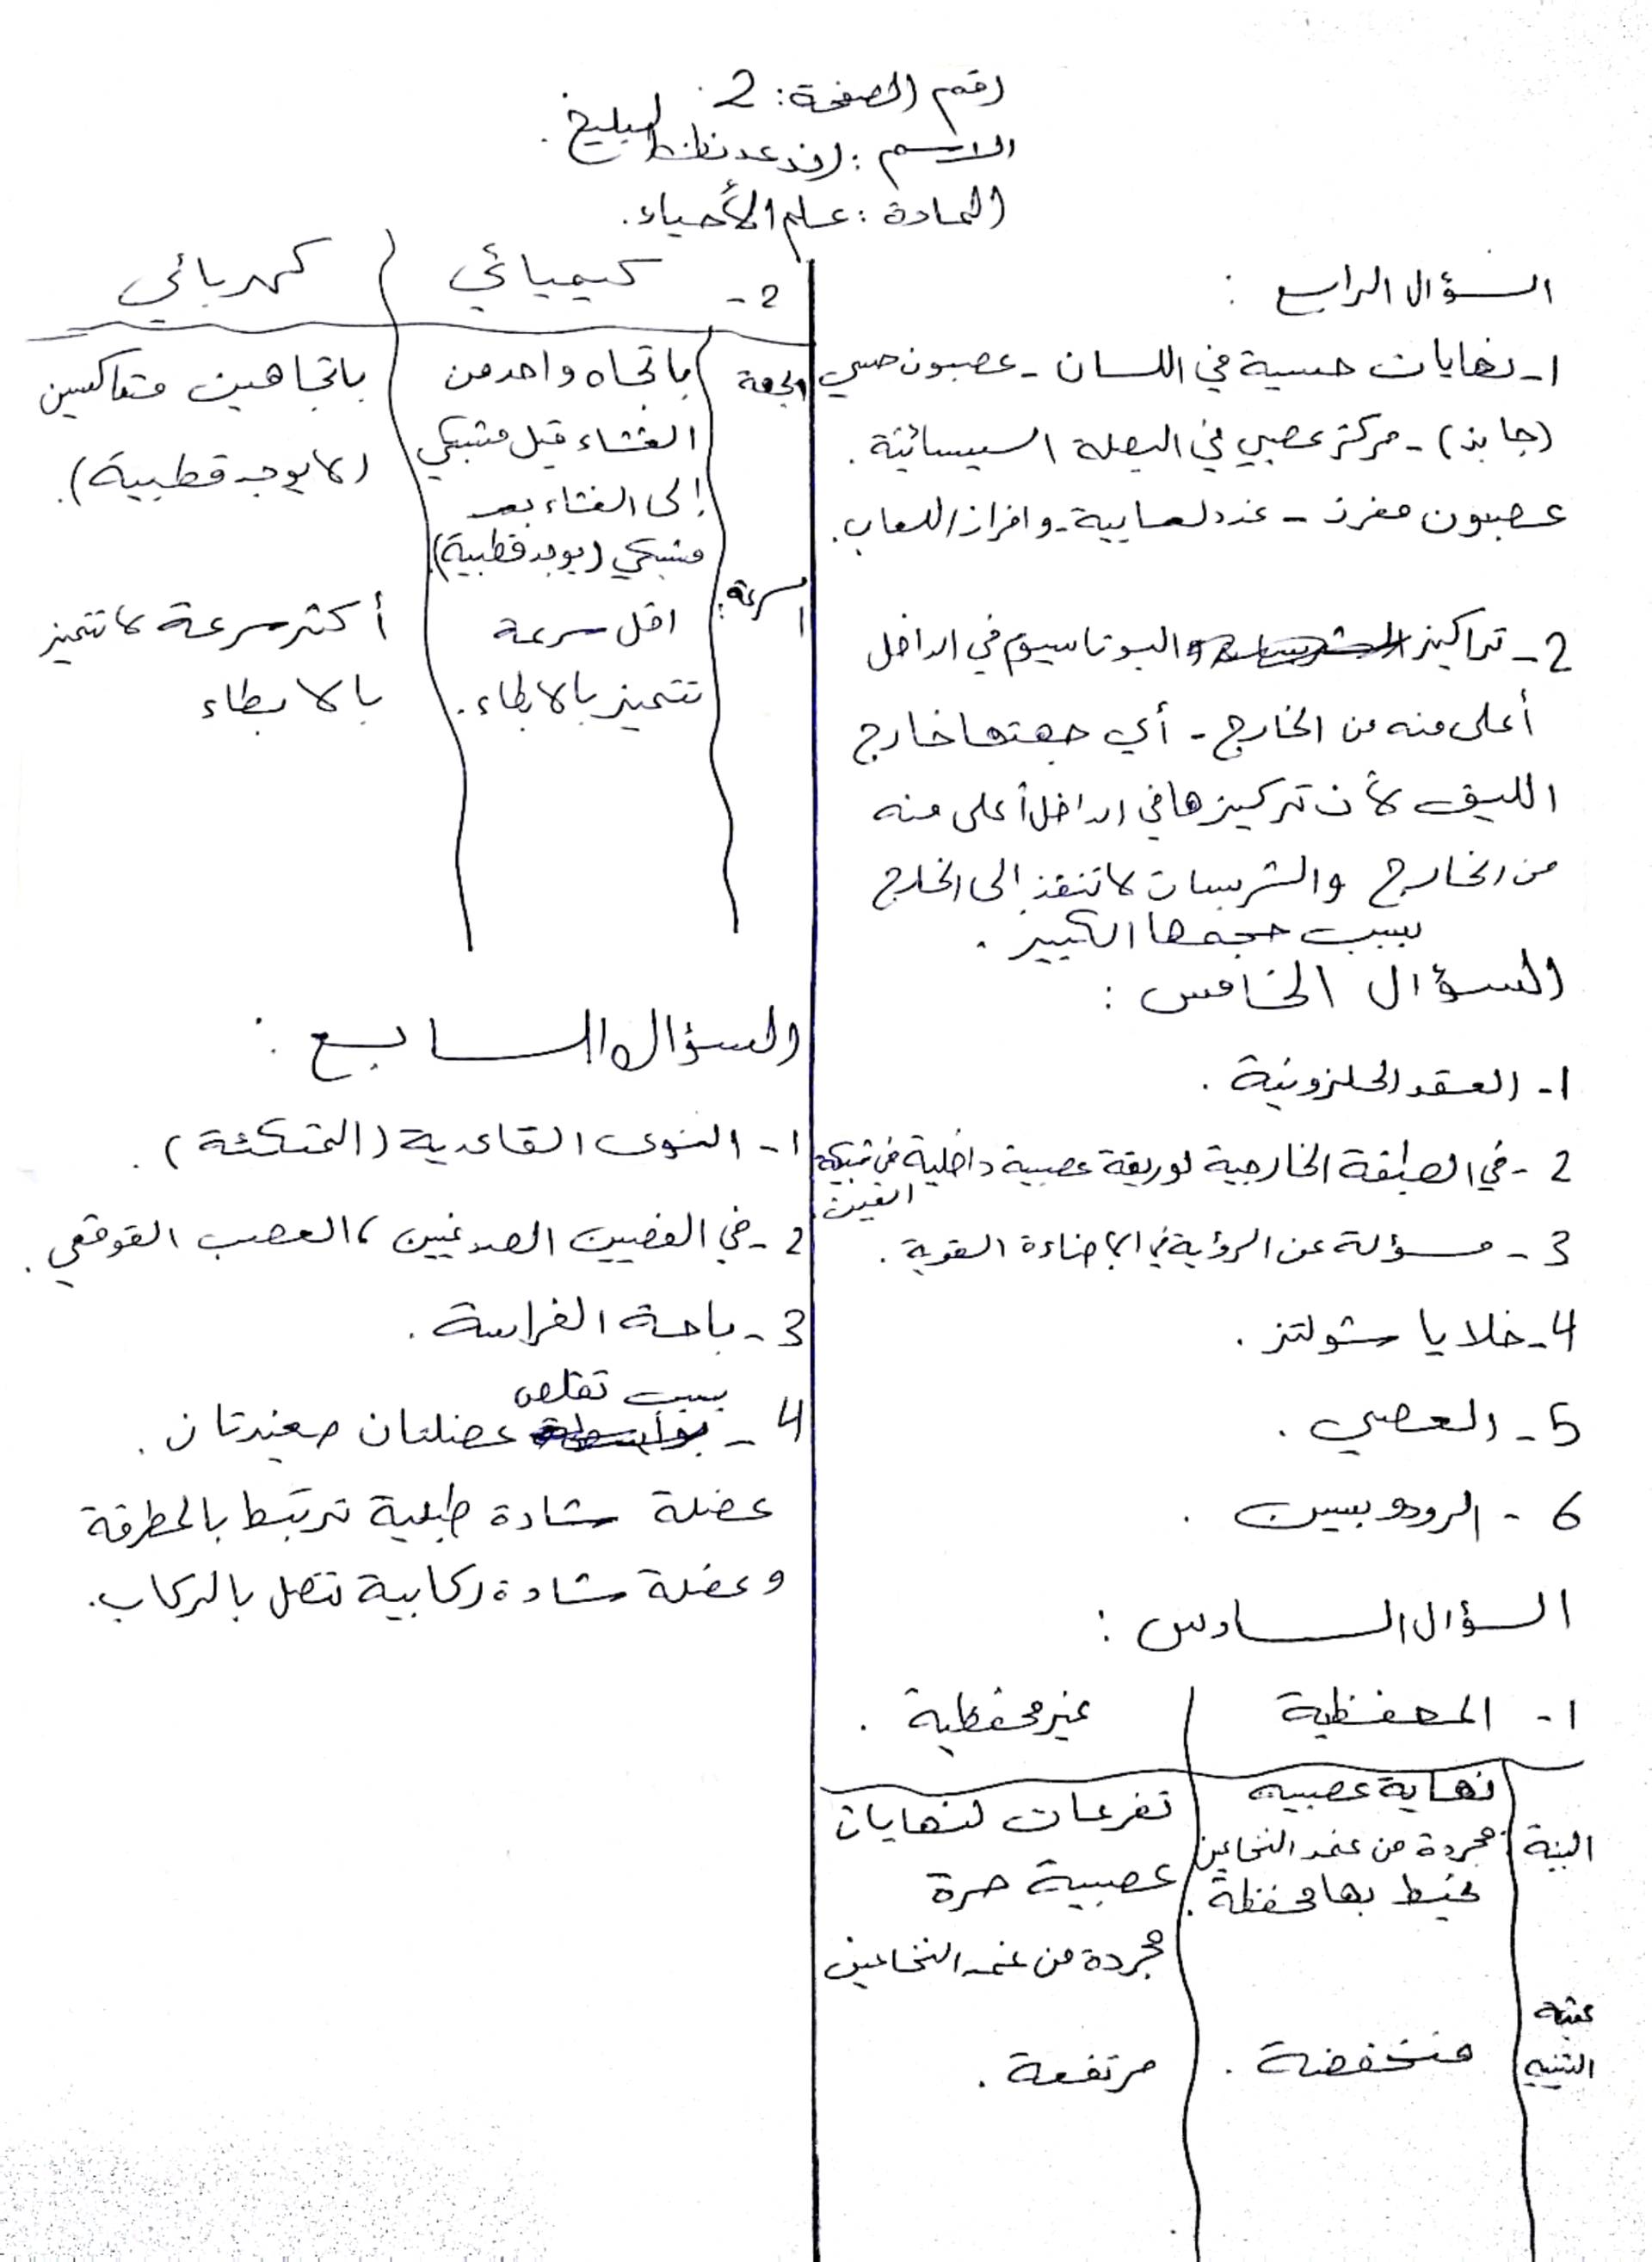 رقم الصفحة: 2.
الاسم: البليخ.
المادة: علم الأحياء.
السؤال الرابع:
1- نهايات حسية في اللسان - عصبون حسي
(جابذ) - مركز عصبي في البصلة السيسائية.
عصبون مفرز - غدد لعابية - وافراز اللعاب.
2- تراكيز البوتاسيوم في الداخل
أعلى منه من الخارج - أي جهتها خارج
الليف لأن تركيزها في الداخل أعلى منه
من الخارج والشرسبات لا تنفذ إلى الخارج
بسبب حجمها الكبير.
السؤال الخامس:
1- العقد الحلزونية.
2- في الطبقة الخارجية لوريقة عصبية داخلية في شبكية
العين.
3- مسؤولة عن الرؤية في الإضاءة القوية.
4- خلايا شولتز.
5- العصي.
6- الرودوبسين.
السؤال السادس:
1- المحفظية
غير محفظية.
البنية
نهاية عصبية
مجردة من غمد النخاعين
يحيط بها محفظة.
تفرعات لنهايات
عصبية حرة
مجردة من غمد النخاعين
عتبة
التنبيه
منخفضة.
مرتفعة.
2-
كيميائي
كهربائي
الجهة
باتجاه واحد من
الغشاء قبل مشبكي
إلى الغشاء بعد
مشبكي (يوجد قطبية).
باتجاهين متعاكسين
(لا يوجد قطبية).
السرعة:
اقل سرعة
تتميز بالابطاء.
أكثر سرعة لا تتميز
بالابطاء
السؤال السابع:
1- النوى القاعدية (المتكئة).
2- في الفصين الصدغيين، العصب القوقعي.
3- باحة الفراسة.
4- بسبب تقلص عضلتان صغيرتان.
عضلة شادة طبلية ترتبط بالمطرقة
وعضلة شادة ركابية تتصل بالركاب.